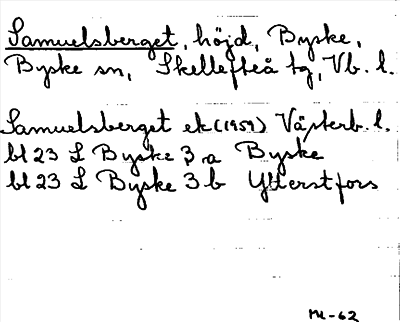 Samuelsberget, höjd, Byske,
Byske sn, Skellefteå tg, Vb. l.
Samuelsberget ek (1959) Västerb. l.
bl 23 L Byske 3 a Byske
bl 23 L Byske 3 b Ytterstfors
M-62